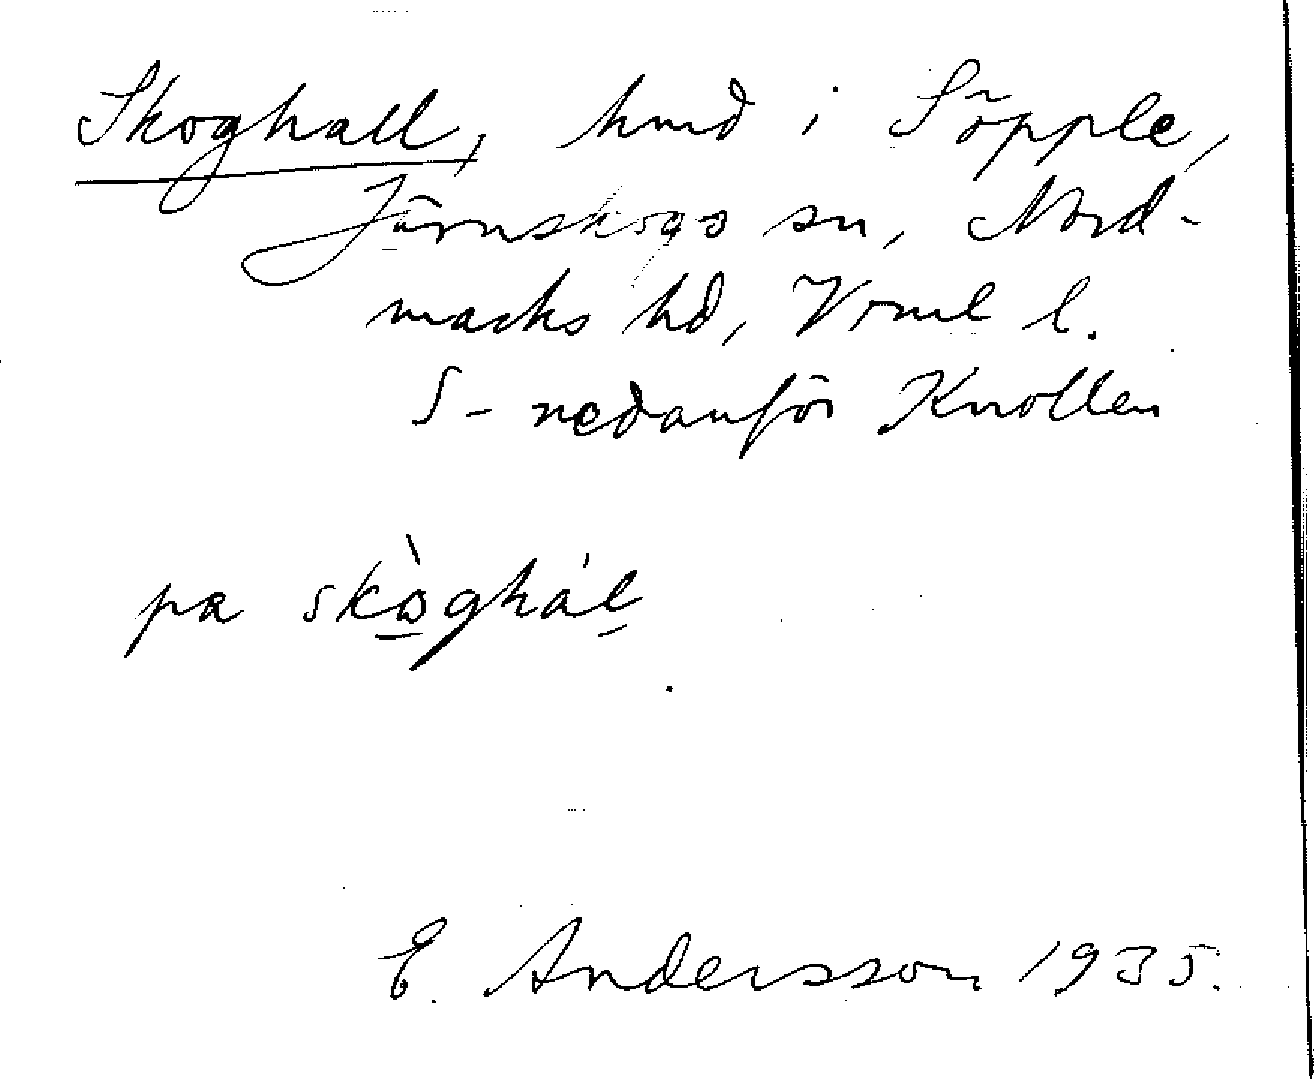 Skoghall, hmd i Söpple,
Järnskogs sn, Nord-
marks hd, Vrml l.
S-nedanför Knollen
pa skòghál
E. Andersson 1935.